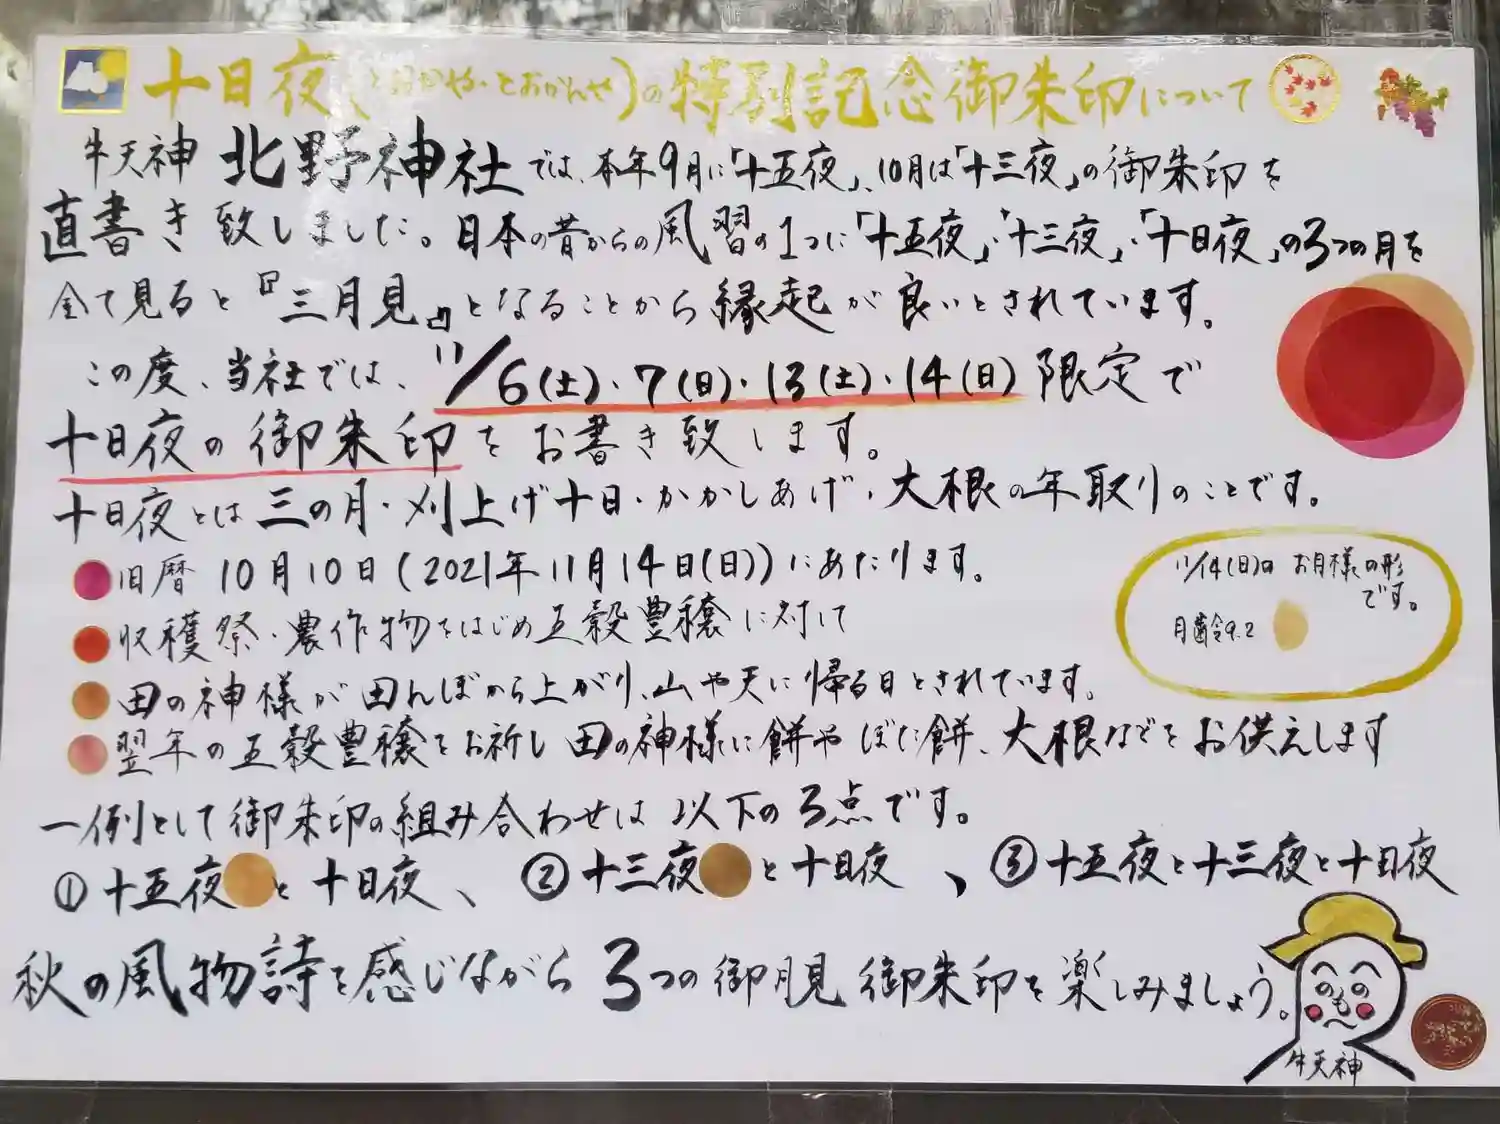 十日夜(とおかや・とおかんや)の特別記念御朱印について
牛天神 北野神社では、本年9月に「十五夜」、10月は「十三夜」の御朱印を
直書き致しました。日本の昔からの風習の1つに「十五夜」・「十三夜」・「十日夜」の3つの月を
全て見ると『三月見』となることから縁起が良いとされています。
この度、当社では、11/6(土)・7(日)・13(土)・14(日)限定で
十日夜の御朱印をお書き致します。
十日夜とは三の月・刈上げ十日・かかしあげ・大根の年取りのことです。
旧暦10月10日(2021年11月14日(日))にあたります。
収穫祭・農作物をはじめ五穀豊穣に対して
田の神様が田んぼから上がり、山や天に帰る日とされています。
翌年の五穀豊穣をお祈し田の神様に餅やぼた餅、大根などをお供えします
11/14(日)の お月様の形
です。
月齢9.2
一例として御朱印の組み合わせは以下の3点です。
①十五夜と十日夜、②十三夜と十日夜、③十五夜と十三夜と十日夜
秋の風物詩を感じながら3つの御月見御朱印を楽しみましょう。
牛天神